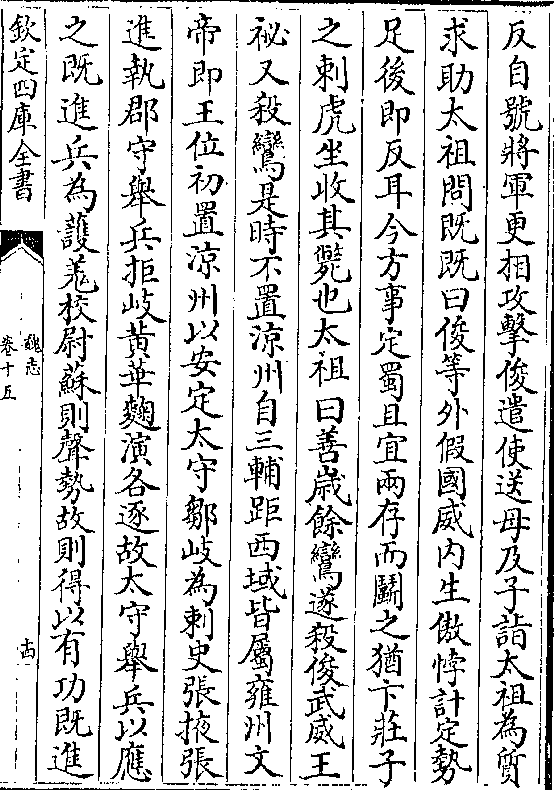 反自號將軍更相攻擊俊遣使送母及子詣太祖為質
求助太祖問既既曰俊等外假國威内生傲悖計定勢
足後即反耳今方事定蜀且宜兩存而鬭之猶卞莊子
之刺虎坐收其斃也太祖曰善嵗餘鸞遂殺俊武威王
祕又殺鸞是時不置涼州自三輔距西域皆屬雍州文
帝即王位初置涼州以安定太守鄒岐為刺史張掖張
進執郡守舉兵拒岐黃華麴演各逐故太守舉兵以應
之既進兵為護羌校尉蘇則聲勢故則得以有功既進
欽定四庫全書
魏志
卷十五
十四